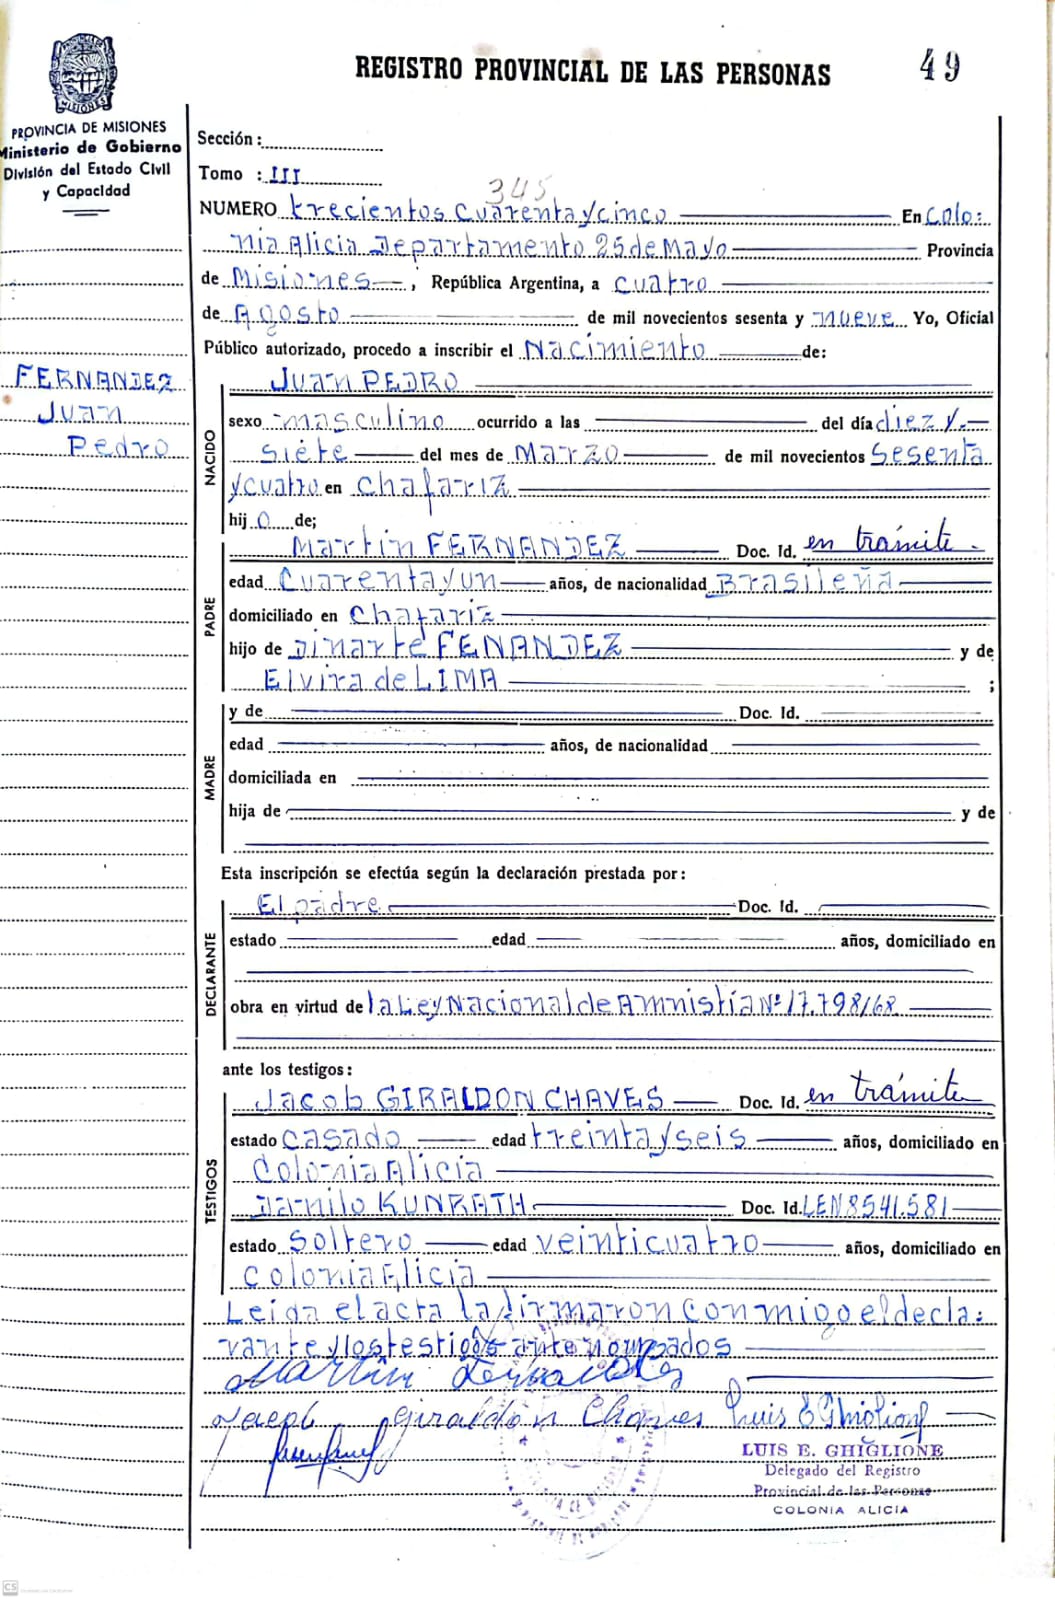 REGISTRO PROVINCIAL DE LAS PERSONAS
49
MISIONES
PROVINCIA DE MISIONES
Ministerio de Gobierno
División del Estado Civil
y Capacidad
Sección :
Tomo : III
345
NUMERO trecientos cuarenta y cinco En Colo:
nia Alicia Departamento 25 de Mayo Provincia
de Misiones , República Argentina, a cuatro
de Agosto de mil novecientos sesenta y nueve Yo, Oficial
Público autorizado, procedo a inscribir el Nacimiento de:
FERNANDEZ
Juan
Pedro
NACIDO
Juan PEDRO
sexo masculino ocurrido a las del día diez y
siete del mes de Marzo de mil novecientos sesenta
y cuatro en Chafariz
hij o de;
PADRE
Martin FERNANDEZ Doc. Id. en trámite.
edad Cuarenta y un años, de nacionalidad Brasileña
domiciliado en Chafariz
hijo de Dinarte FENANDEZ y de
Elvira de LIMA ;
MADRE
y de Doc. Id.
edad años, de nacionalidad
domiciliada en
hija de y de
Esta inscripción se efectúa según la declaración prestada por:
DECLARANTE
El padre Doc. Id.
estado edad años, domiciliado en
obra en virtud de la Ley Nacional de Amnistía Nº 17.798/68
ante los testigos:
TESTIGOS
Jacob GIRALDON CHAVES Doc. Id. en trámite
estado casado edad treinta y seis años, domiciliado en
Colonia Alicia
Danilo KUNRATH Doc. Id. LEN 8541.581
estado Soltero edad veinticuatro años, domiciliado en
Colonia Alicia
Leida el acta la firmaron conmigo el decla:
rante y los testigos ante nombrados
Martin Fernandes
Jacob Giraldon Chaves Luis E Ghiglione
LUIS E. GHIGLIONE
Delegado del Registro
Provincial de las Personas
COLONIA ALICIA
CS